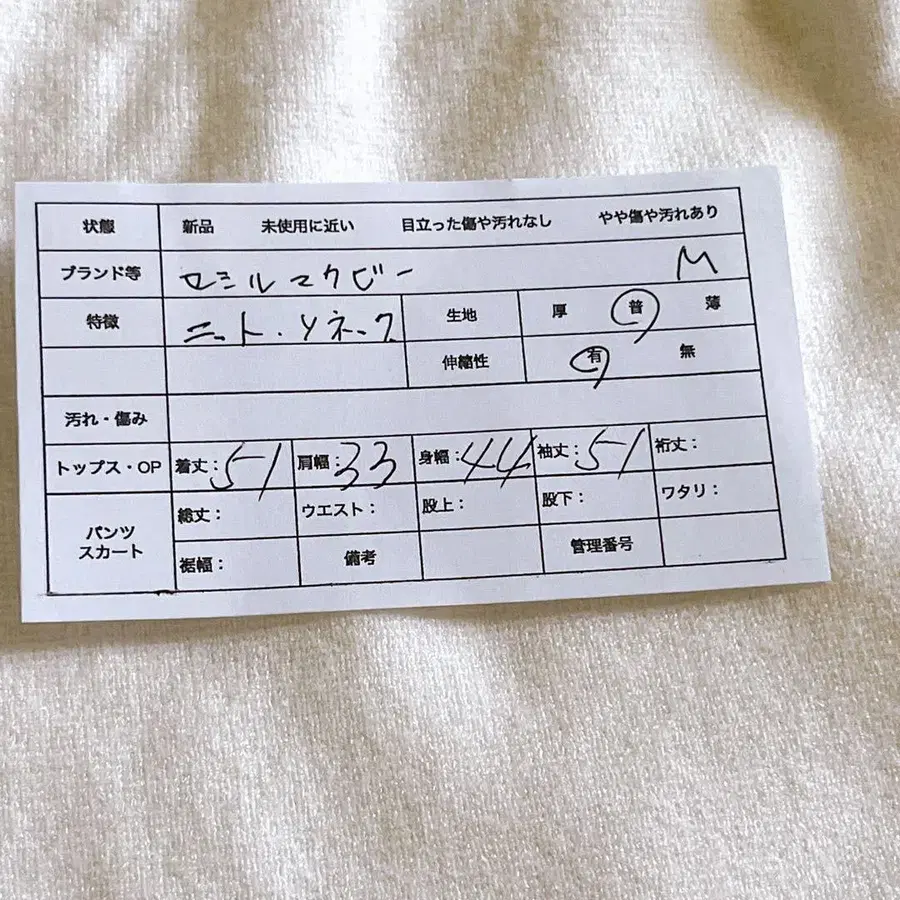 状態 新品 未使用に近い 目立った傷や汚れなし やや傷や汚れあり
ブランド等 セシルマクビー M
特徴 ニット・Vネック 生地 厚 普 薄
伸縮性 有 無
汚れ・傷み
トップス・OP 着丈：51 肩幅：33 身幅：44 袖丈：51 裄丈：
パンツ
スカート
総丈： ウエスト： 股上： 股下： ワタリ：
裾幅： 備考 管理番号